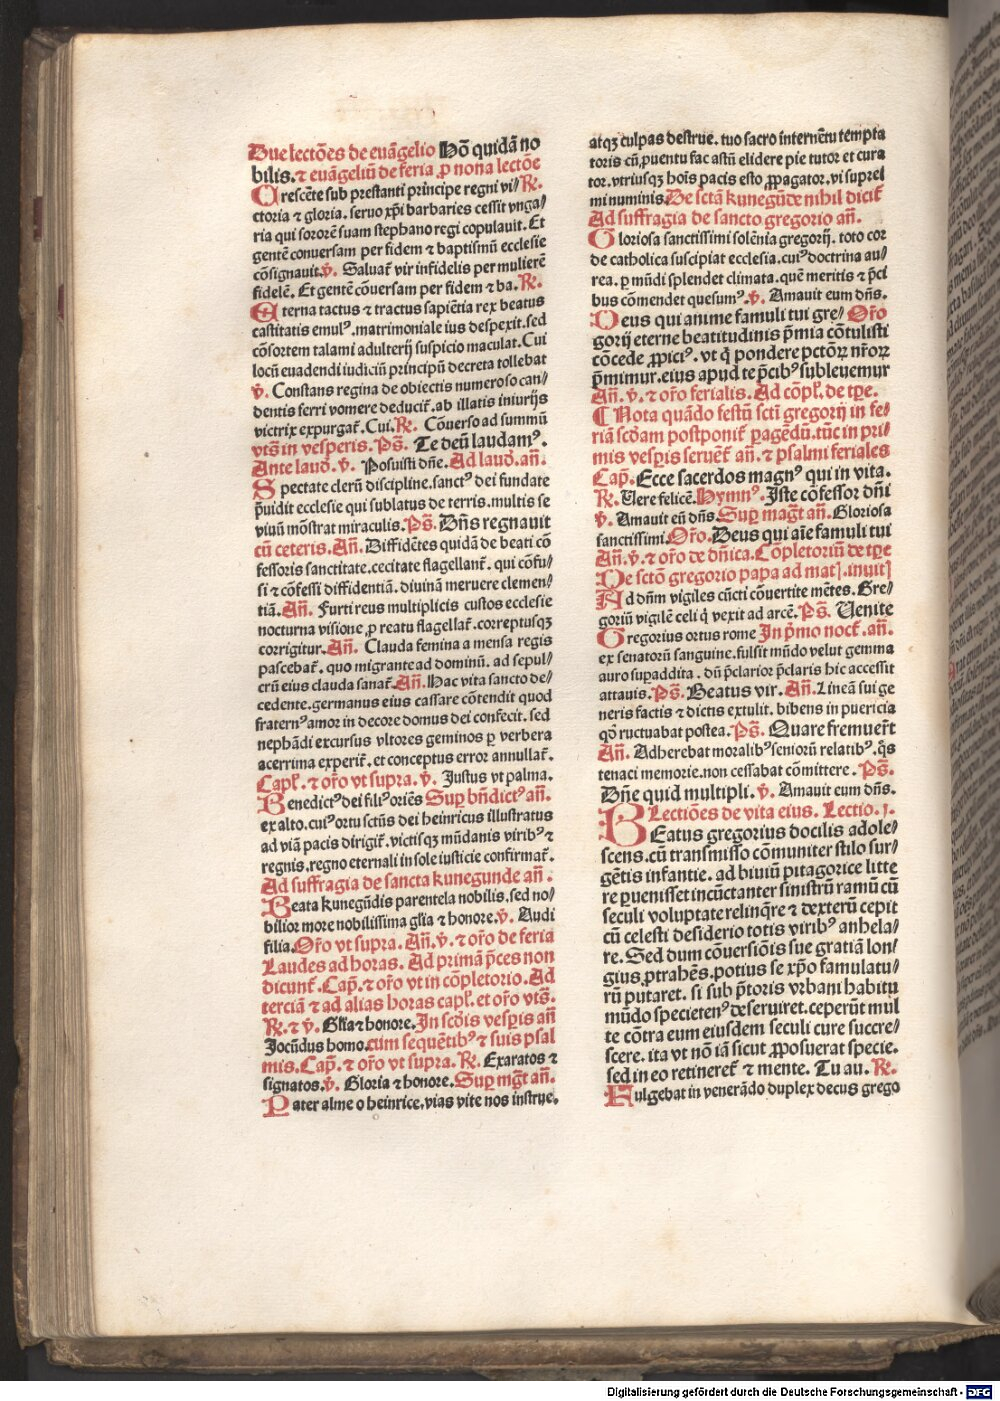 Due lectōes de euāgelio Hō quidā no
bilis.⁊ euāgeliū de feria ꝓ nona lectōe
Crescēte sub prestanti principe regni vi/ ℟.
ctoria ⁊ gloria. seruo xp̄i barbaries cessit vnga/
ria qui sororē suam stephano regi copulauit. Et
gentē conuersam per fidem ⁊ baptismū ecclesie
cōsignauit. ℣. Saluat̄ vir infidelis per mulierē
fidelē. Et gentē cōuersam per fidem ⁊ ba. ℟.
Eterna tactus ⁊ tractus sapiētia rex beatus
castitatis emulꝰ. matrimoniale ius despexit. sed
cōsortem talami adulterij suspicio maculat. Cui
locū euadendi iudiciū principū decreta tollebat
℣. Constans regina de obiectis numeroso can/
dentis ferri vomere deducit̄. ab illatis iniurijs
victrix expurgat̄. Cui. ℟. Cōuerso ad summū
vts̄ in vesperis. Ps̄. Te deū laudamꝰ.
Ante laud̄. ℣. Posuisti dn̄e. Ad laud̄. an̄.
Spectate clerū discipline. sanctꝰ dei fundate
p̄uidit ecclesie qui sublatus de terris. multis se
viuū mōstrat miraculis. Ps̄. Dn̄s regnauit
cū ceteris. An̄. Diffidētes quidā de beati cō
fessoris sanctitate. cecitate flagellant̄. qui cōfu/
si ⁊ cōfessi diffidentiā. diuinā meruere clemen/
tiā. An̄. Furti reus multiplicis custos ecclesie
nocturna visione ꝓ reatu flagellat̄. correptusqꝫ
corrigitur. An̄. Clauda femina a mensa regis
pascebat̄. quo migrante ad dominū. ad sepul/
crū eius clauda sanat̄. An̄. Hac vita sancto de/
cedente. germanus eius cassare cōtendit quod
fraternꝰ amor in decore domus dei confecit. sed
nephādi excursus vltores geminos ꝑ verbera
acerrima experit̄. et conceptus error annullat̄.
Capl̄. ⁊ or̄o vt supra. ℣. Justus vt palma.
Benedictꝰ dei filiꝰ oriēs Suꝑ bn̄dictꝰ an̄.
ex alto. cuiꝰ ortu sctūs dei heinricus illustratus
ad viā pacis dirigit̄. victisqꝫ mūdanis viribꝰ ⁊
regnis. regno eternali in sole iusticie confirmat̄.
Ad suffragia de sancta kunegunde an̄.
Beata kunegūdis parentela nobilis. sed no/
bilior more nobilissima gl̄ia ⁊ honore. ℣. Audi
filia. Or̄o vt supra. An̄. ℣. ⁊ or̄o de feria
Laudes ad horas. Ad primā p̄ces non
dicunt̄. Cap̄. ⁊ or̄o vt in cōpletorio. Ad
terciā ⁊ ad alias horas capl̄. et or̄o vts̄.
℟. ⁊ ℣. Gl̄ia ⁊ honore. In sc̄dis vesp̄is an̄
Jocūdus homo. cum sequētibꝰ ⁊ suis psal
mis. Cap̄. ⁊ or̄o vt supra. ℟. Exaratos ⁊
signatos. ℣. Gloria ⁊ honore. Suꝑ mḡt an̄.
Pater alme o heinrice. vias vite nos instrue.
atqꝫ culpas destrue. tuo sacro interuētu tempta
toris cū ꝓuentu fac astū elidere pie tutor et cura
tor. vtriusqꝫ hoīs pacis esto ꝓpagator. vi supre
mi numinis. De sctā kunegūde nihil dicit̄
Ad suffragia de sancto gregorio an̄.
Gloriosa sanctissimi solēnia gregorij. toto cor
de catholica suscipiat ecclesia. cuiꝰ doctrina au/
rea. ꝑ mūdi splendet climata. quē meritis ⁊ p̄ci
bus cōmendet quesumꝰ. ℣. Amauit eum dn̄s.
Deus qui anime famuli tui gre/ Or̄o
gorij eterne beatitudinis p̄mia cōtulisti
cōcede ꝓpiciꝰ. vt q̄ pondere pctōꝝ nr̄oꝝ
p̄mimur. eius apud te p̄cibꝰ subleuemur
An̄. ℣. ⁊ or̄o ferialis. Ad cōpl̄. de tp̄e.
¶ Nota quādo festū scti gregorij in fe/
riā scd̄am postponit̄ ꝑagēdū. tūc in pri/
mis vesp̄is seruēt̄ an̄. ⁊ psalmi feriales
Cap̄. Ecce sacerdos magnꝰ qui in vita.
℟. Uere felicē. Hymnꝰ. Iste cōfessor dn̄i
℣. Amauit eū dn̄s. Suꝑ mag̅t an̄. Gloriosa
sanctissimi. Or̄o. Deus qui aīe famuli tui
An̄. ℣. ⁊ or̄o de dn̄ica. Cōpletoriū de tp̄e
De sctō gregorio papa ad mat̄. inuit̄
Ad dn̄m vigiles cūcti cōuertite mētes. Gre/
goriū vigilē celi q̄ vexit ad arcē. Ps̄. Uenite
Gregorius ortus rome In p̄mo noct̄. an̄.
ex senatorū sanguine. fulsit mūdo velut gemma
auro suꝑaddita. dū p̄clarior p̄claris hic accessit
attauis. Ps̄. Beatus vir. An̄. Lineā sui ge
neris factis ⁊ dictis extulit. bibens in puericia
qō ructuabat postea. Ps̄. Quare fremuer̄t
An̄. Adherebat moralibꝰ seniorū relatibꝰ. q̄s
tenaci memorie. non cessabat cōmittere. Ps̄.
Dn̄e quid multipli. ℣. Amauit eum dn̄s.
Lectiōes de vita eius. Lectio. 1.
BEatus gregorius docilis adole/
scens. cū transmisso cōmuniter stilo sur/
gētis infantie. ad biuiū pitagorice litte
re ꝑuenisset incūctanter sinistrū ramū cū
seculi voluptate relinq̄re ⁊ dexterū cepit
cū celesti desiderio totis viribꝰ anhela/
re. Sed dum cōuersiōis sue gratiā lon/
gius ꝓtrahēs. potius se xp̄o famulatu/
rū putaret. si sub p̄toris vrbani habitu
mūdo specietenꝰ deseruiret. ceperūt mul
te cōtra eum eiusdem seculi cure succre/
scere. ita vt nō iā sicut ꝓposuerat specie.
sed in eo retineret̄ ⁊ mente. Tu au. ℟.
Fulgebat in venerādo duplex decus grego
Digitalisierung gefördert durch die Deutsche Forschungsgemeinschaft - DFG